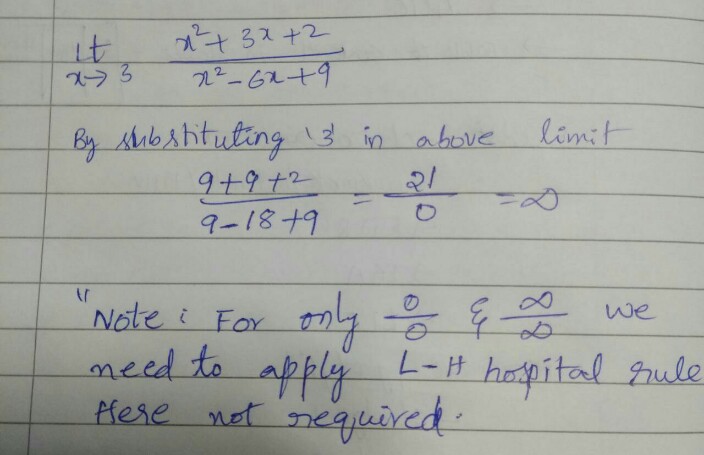 lt x→3 x²+3x+2 / x²-6x+9
By substituting '3' in above limit
9+9+2 / 9-18+9 = 21/0 = ∞
"Note: For only 0/0 & ∞/∞ we
need to apply L-H hospital rule
Here not required.